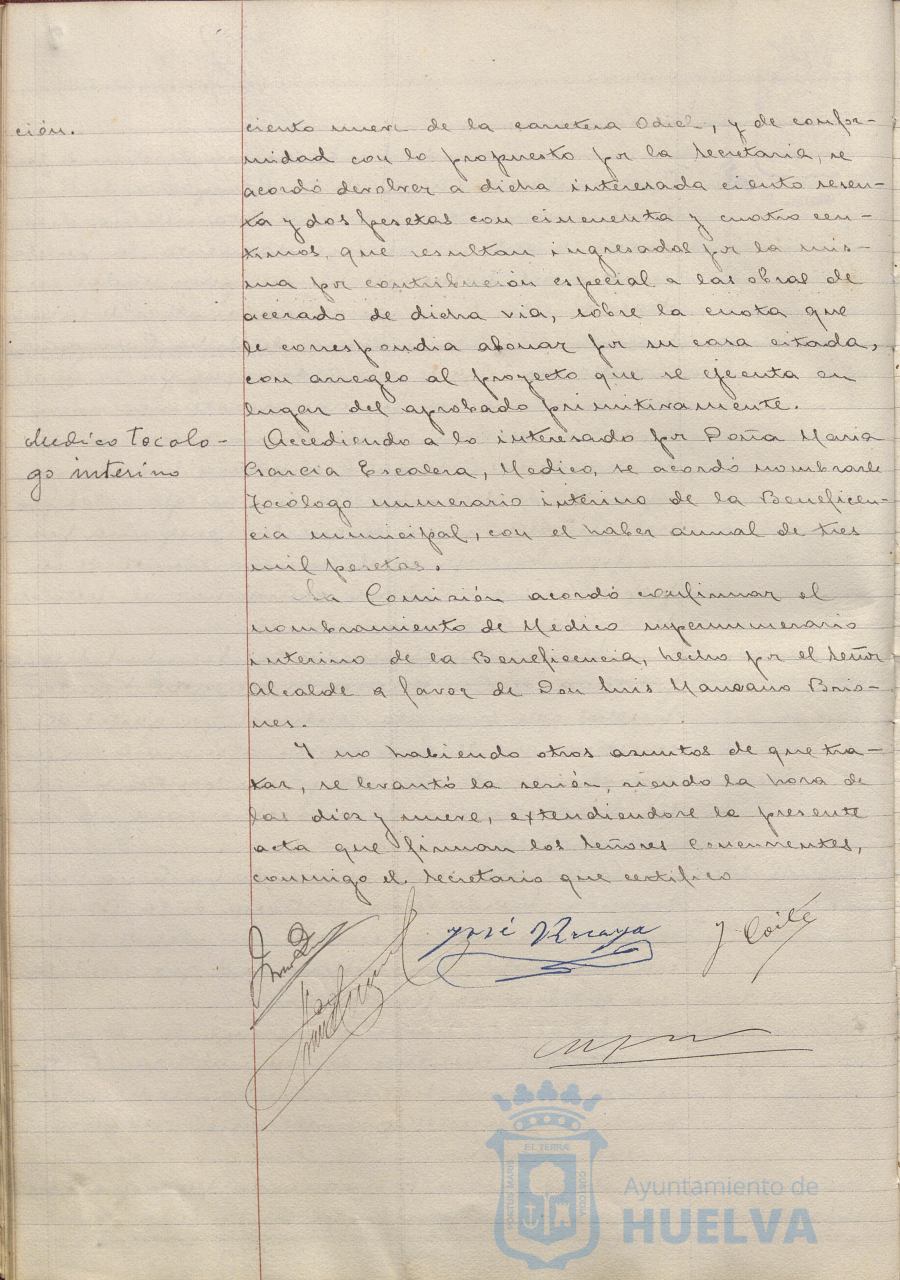 ción.
ciento nueve de la carretera Odiel, y de confor-
midad con lo propuesto por la Secretaria, se
acordó devolver a dicha interesada ciento sesen-
ta y dos pesetas con cincuenta y cuatro cen-
timos, que resultan ingresadas por la mis-
ma por contribución especial a las obras de
acerado de dicha via, sobre la cuota que
le correspondia abonar por su casa citada,
con arreglo al proyecto que se ejecuta en
lugar del aprobado primitivamente.
Medico Tocolo-
go interino
Accediendo a lo interesado por Doña Maria
Garcia Escalera, Medico, se acordó nombrarle
Tocólogo numerario interino de la Beneficen-
cia municipal, con el haber anual de tres
mil pesetas.
La Comisión acordó confirmar el
nombramiento de Medico supernumerario
interino de la Beneficencia, hecho por el Señor
Alcalde a favor de Don Luis Manzano Brio-
nes.
Y no habiendo otros asuntos de que tra-
tar, se levantó la sesión, siendo la hora de
las diez y nueve, extendiendose la presente
acta que firman los Señores Concurrentes,
conmigo el Secretario que certifico
José
EL TERRÆ
PORTUS MARIS
CUSTODIA
Ayuntamiento de
HUELVA